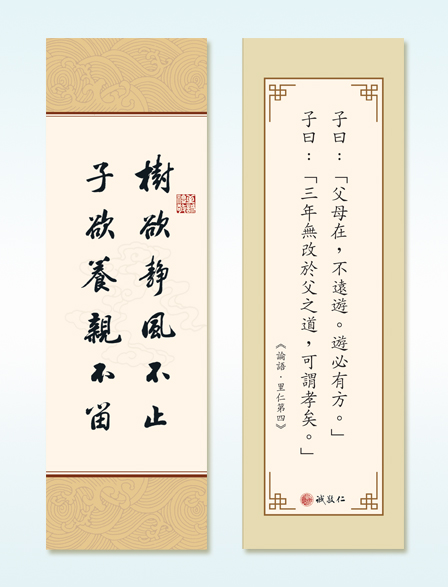 樹欲靜風不止
子欲養親不留
子曰：「父母在，不遠遊。遊必有方。」
子曰：「三年無改於父之道，可謂孝矣。」
《論語．里仁第四》
誠敬仁